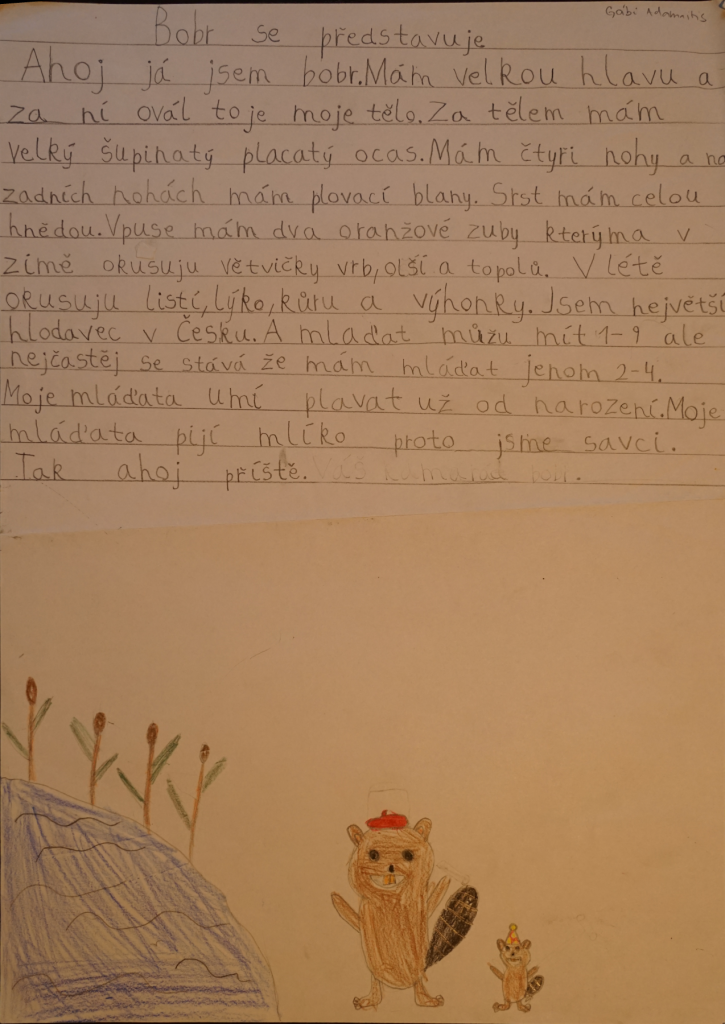 Gábi
Bobr se představuje
Ahoj já jsem bobr.Mám velkou hlavu a
za ní ovál to je moje tělo.Za tělem mám
velký šupinatý placatý ocas.Mám čtyři nohy a na
zadních nohách mám plovací blany. Srst mám celou
hnědou.Vpuse mám dva oranžové zuby kterýma v
zimě okusuju větvičky vrb,olší a topolů. V létě
okusuju listí,lýko,kůru a výhonky.Jsem největší
hlodavec v Česku.A mlaďat můžu mít 1-9 ale
nejčastěj se stává že mám mláďat jenom 2-4.
Moje mláďata umí plavat už od narození.Moje
mláďata pijí mlíko proto jsme savci.
Tak ahoj příště. Váš kamarád bobr.